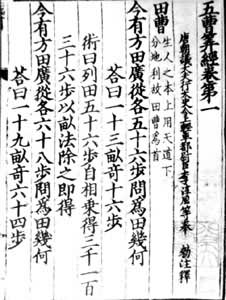 五曹筭經卷第一
唐朝議大夫行太史令上輕車都尉臣李淳風等奉 勑注釋
田曹
生人之本上用天道下
分地利故田曹為首
今有方田廣從各五十六步問為田幾何
荅曰一十三畝奇十六步
術曰列田五十六步自相乘得三千一百
三十六步以畝法除之即得
今有方田廣從各六十八步問為田幾何
荅曰一十九畝奇六十四步